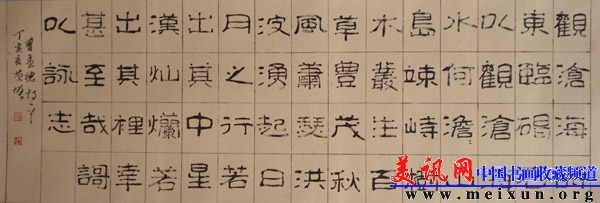 觀滄海
東臨碣
以觀滄
水何澹山
島竦峙
木叢生百
草豊茂秋
風蕭瑟洪
波湧起日
月之行若
出其中星
漢灿爛若
出其裡幸
甚至哉謌
以詠志
曹孟德詩一首
丁亥
美讯网 中国书画收藏频道
www.meixun.org